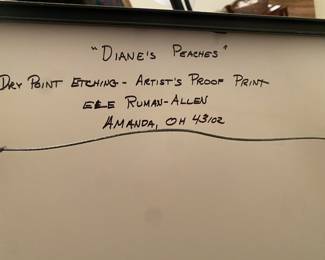 "DIANE'S PEACHES"
DRY POINT ETCHING - ARTIST'S PROOF PRINT
ELE RUMAN-ALLEN
AMANDA, OH 43102